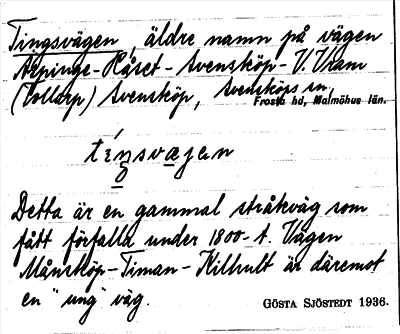 Tingsvägen, äldre namn på vägen
Arpinge-Råset - Svensköp - V. Vram
(Vollarp) Svensköp, Svensköps sn,
Frosta hd, Malmöhus län.
tíŋsvæjən
Detta är en gammal stråkväg som
fått förfalla under 1800-t. Vägen
Månsköp-Timan-Killhult är däremot
en "ung" väg.
GÖSTA SJÖSTEDT 1936.